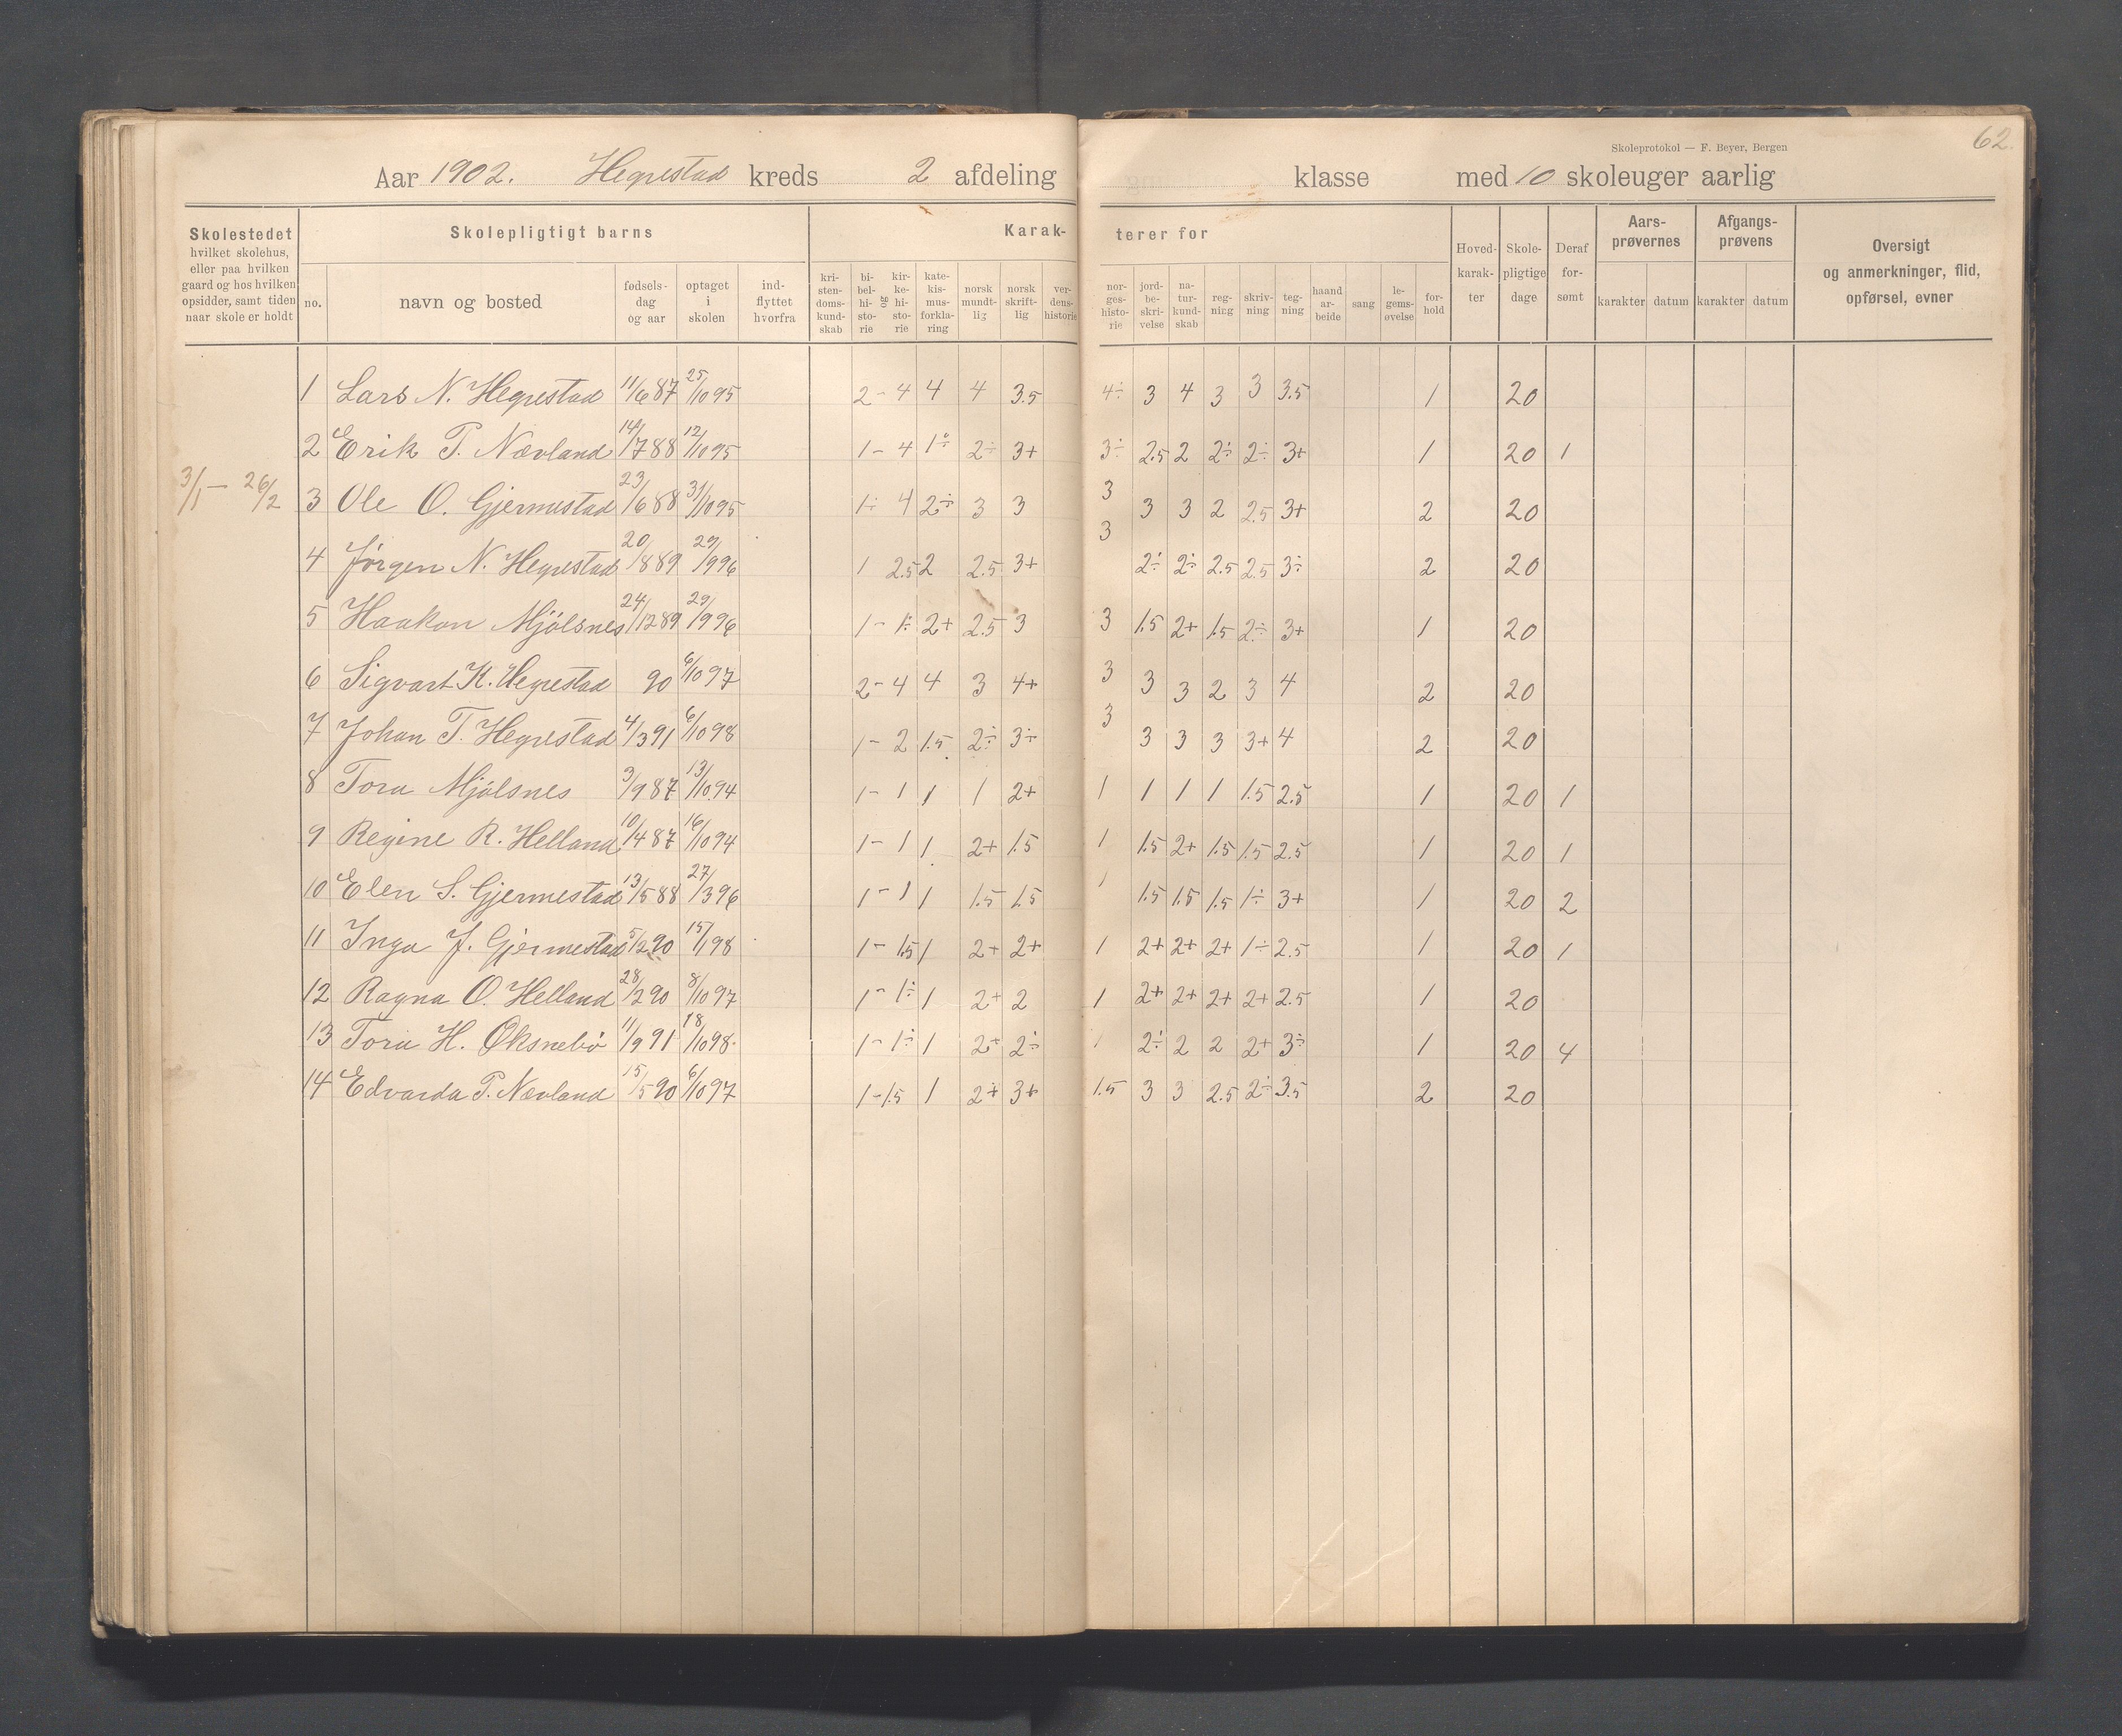 62.
Skoleprotokol — F. Beyer, Bergen
Aar 1902. Hegrestad kreds 2 afdeling klasse med 10 skoleuger aarlig
Skolestedet hvilket skolehus, eller paa hvilken gaard og hos hvilken opsidder, samt tiden naar skole er holdt
Skolepligtigt barns
Karakterer for
no. navn og bosted fødselsdag og aar optaget i skolen indflyttet hvorfra kristendomskundskab bibelhistorie og kirkehistorie katekismusforklaring norsk mundtlig norsk skriftlig verdenshistorie norgeshistorie jordbeskrivelse naturkundskab regning skrivning tegning haandarbeide sang legemsøvelse forhold
Hovedkarakter Skolepligtige dage Deraf forsømt Aarsprøvernes karakter datum Afgangsprøvens karakter datum Oversigt og anmerkninger, flid, opførsel, evner
3/1 — 26/2
1 Lars N. Hegrestad 11/6 87 25/10 95 2 - 4 4 4 3.5 4÷ 3 4 3 3 3.5 1 20
2 Erik P. Nævland 14/7 88 12/10 95 1 - 4 1÷ 2÷ 3+ 3÷ 2.5 2 2÷ 2÷ 3+ 1 20 1
3 Ole O. Gjermestad 23/6 88 31/10 95 1÷ 4 2÷ 3 3 3 3 3 2 2.5 3+ 2 20
4 Jørgen N. Hegrestad 20/8 89 29/9 96 1 2.5 2 2.5 3+ 3 2÷ 2÷ 2.5 2.5 3÷ 2 20
5 Haakon Mjølsnes 24/12 89 29/9 96 1 - 1÷ 2+ 2.5 3 3 1.5 2+ 1.5 2÷ 3+ 1 20
6 Sigvart K. Hegrestad 90 6/10 97 2 - 4 4 3 4+ 3 3 3 2 3 4 2 20
7 Johan T. Hegrestad 4/3 91 6/10 98 1 - 2 1.5 2÷ 3÷ 3 3 3 3 3+ 4 2 20
8 Tora Mjølsnes 3/9 87 13/10 94 1 - 1 1 1 2+ 1 1 1 1 1.5 2.5 1 20 1
9 Regine R. Helland 10/4 87 16/10 94 1 - 1 1 2+ 1.5 1 1.5 2+ 1.5 1.5 2.5 1 20 1
10 Elen S. Gjermestad 13/5 88 27/3 96 1 - 1 1 1.5 1.5 1 1.5 1.5 1.5 1÷ 3+ 1 20 2
11 Inga J. Gjermestad 5/2 90 15/1 98 1 - 1.5 1 2+ 2+ 1 2+ 2+ 2+ 1÷ 2.5 1 20 1
12 Ragna O. Helland 28/2 90 8/10 97 1 - 1÷ 1 2+ 2 1 2+ 2+ 2+ 2+ 2.5 1 20
13 Tora H. Øksnebø 11/9 91 18/10 98 1 - 1÷ 1 2+ 2÷ 1 2÷ 2 2 2+ 3÷ 1 20 4
14 Edvarda P. Nævland 15/5 90 6/10 97 1 - 1.5 1 2+ 3+ 1.5 3 3 2.5 2÷ 3.5 2 20